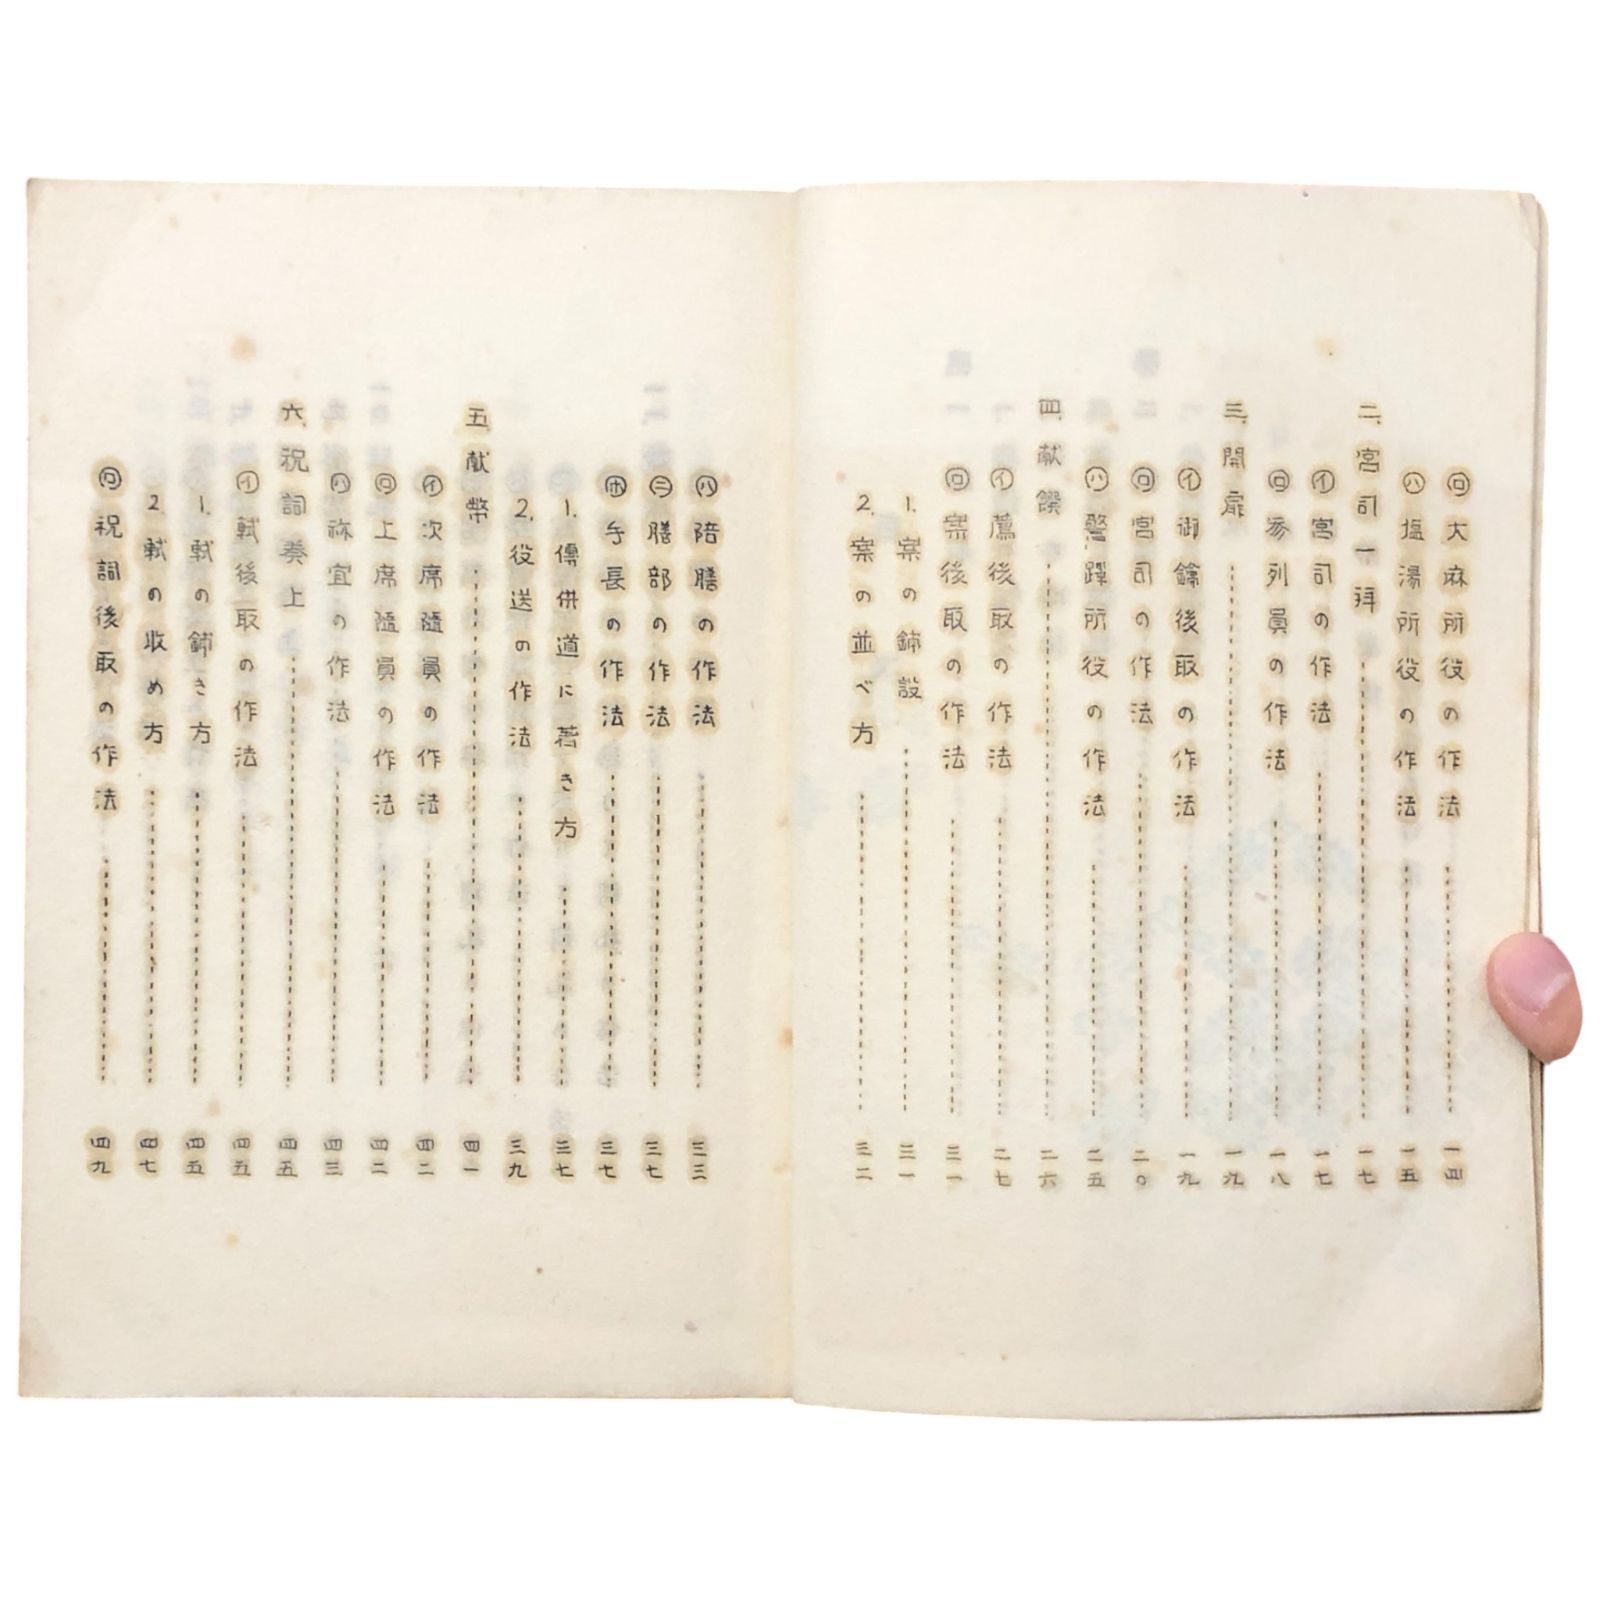 ㋺大麻所役の作法 一四
㋩塩湯所役の作法 一五
二、宮司一拝 一七
㋑宮司の作法 一七
㋺参列員の作法 一八
三、開扉 一九
㋑御鑰後取の作法 一九
㋺宮司の作法 二〇
㋩警蹕所役の作法 二五
四、献饌 二六
㋑薦後取の作法 二七
㋺案後取の作法 三一
1.案の鋪設 三一
2.案の並べ方 三二
㋩陪膳の作法 三三
㊁膳部の作法 三七
㋭手長の作法 三七
1.傳供道に著き方 三七
2.役送の作法 三九
五、献幣 四一
㋑次席隨員の作法 四二
㋺上席隨員の作法 四二
㋩祢宜の作法 四三
六、祝詞奏上 四五
㋑軾後取の作法 四五
1.軾の鋪き方 四五
2.軾の收め方 四七
㋺祝詞後取の作法 四九